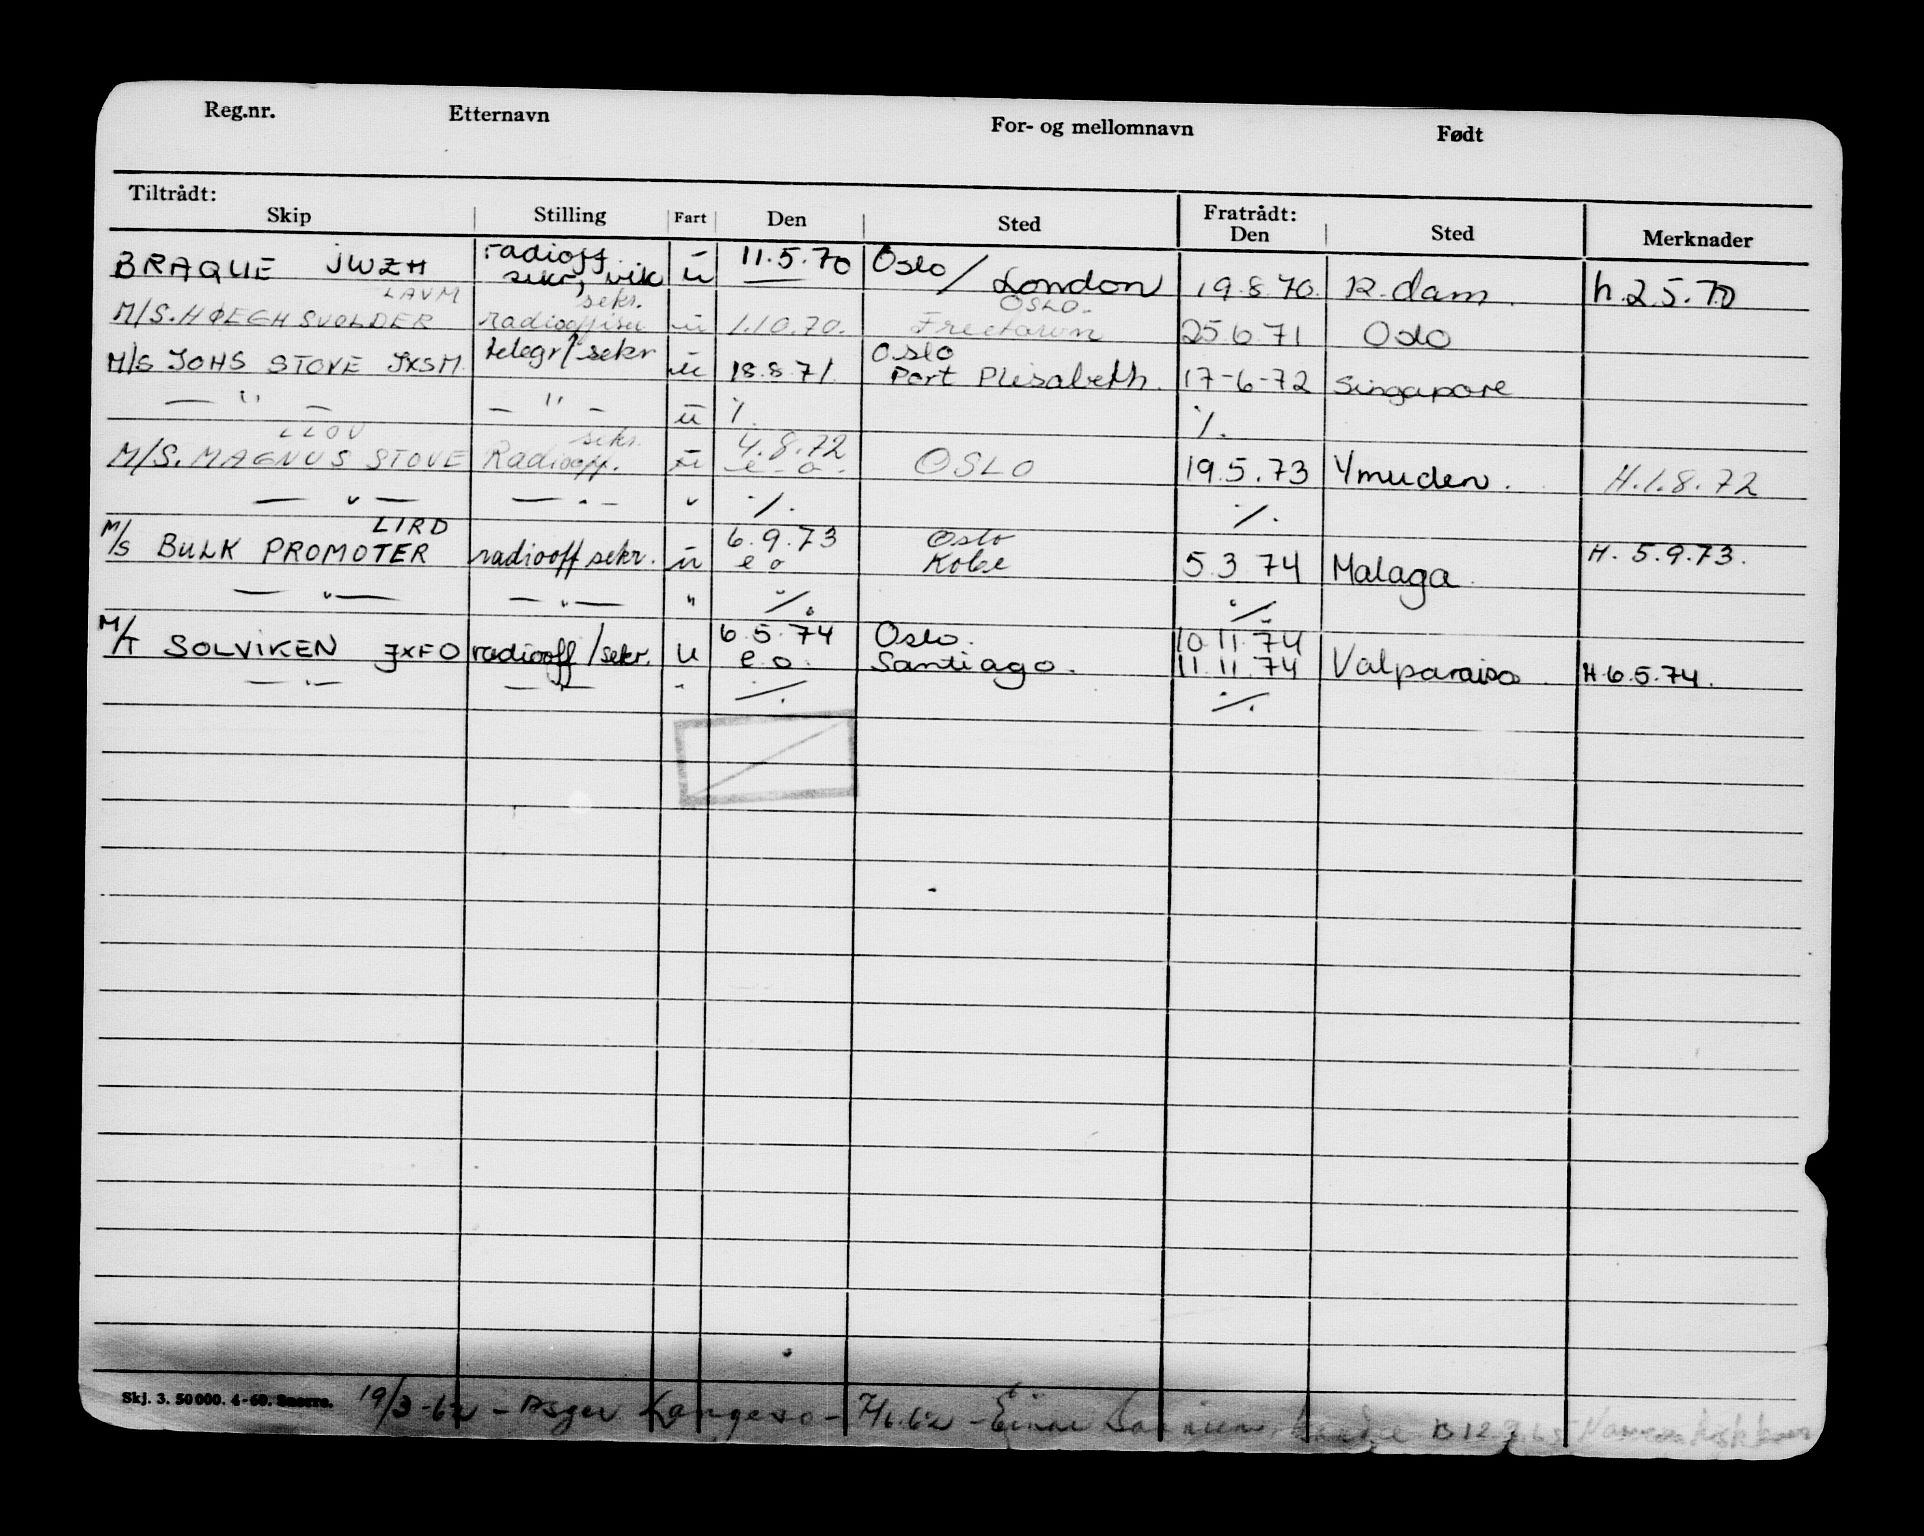 Reg.nr. Etternavn For- og mellomnavn Født
Tiltrådt: Fratrådt:
Skip Stilling Fart Den Sted Den Sted Merknader
BRAQUE JWZH radiooff. sekr, vik ū 11.5.70 Oslo / London 19.8.70. R.dam. h.25.70
LAVM sekr. OSLO.
M/S. HØEGH SVOLDER ū 1.10.70. Freetown 25.6.71 Oslo
M/S JOHS STOVE JXSM telegr/sekr ū 18.8.71. Oslo Port Plisabeth. 17-6-72 Singapore
— " — — " — ū ./. ./.
LLOV sekr. 4.8.72
M/S. MAGNUS STOVE Radiooff. ū e-o. OSLO 19.5.73 Ymuden. H.1.8.72
— " — — " — " ./. ./.
LIRD 6.9.73 Oslo
M/S BULK PROMOTER radiooff sekr. ū e o Kobe 5.3.74 Malaga. H. 5.9.73.
— " — — " — " ./. ./.
6.5.74 Oslo. 10.11.74
M/T SOLVIKEN JXFO radiooff/sekr. u e.o. Santiago. 11.11.74 Valparaiso H.6.5.74.
— " — — " — " ./. ./.
Skj. 3. 50000. 4-60. 19/3-62 - Asger - 7/6.62 - Einar